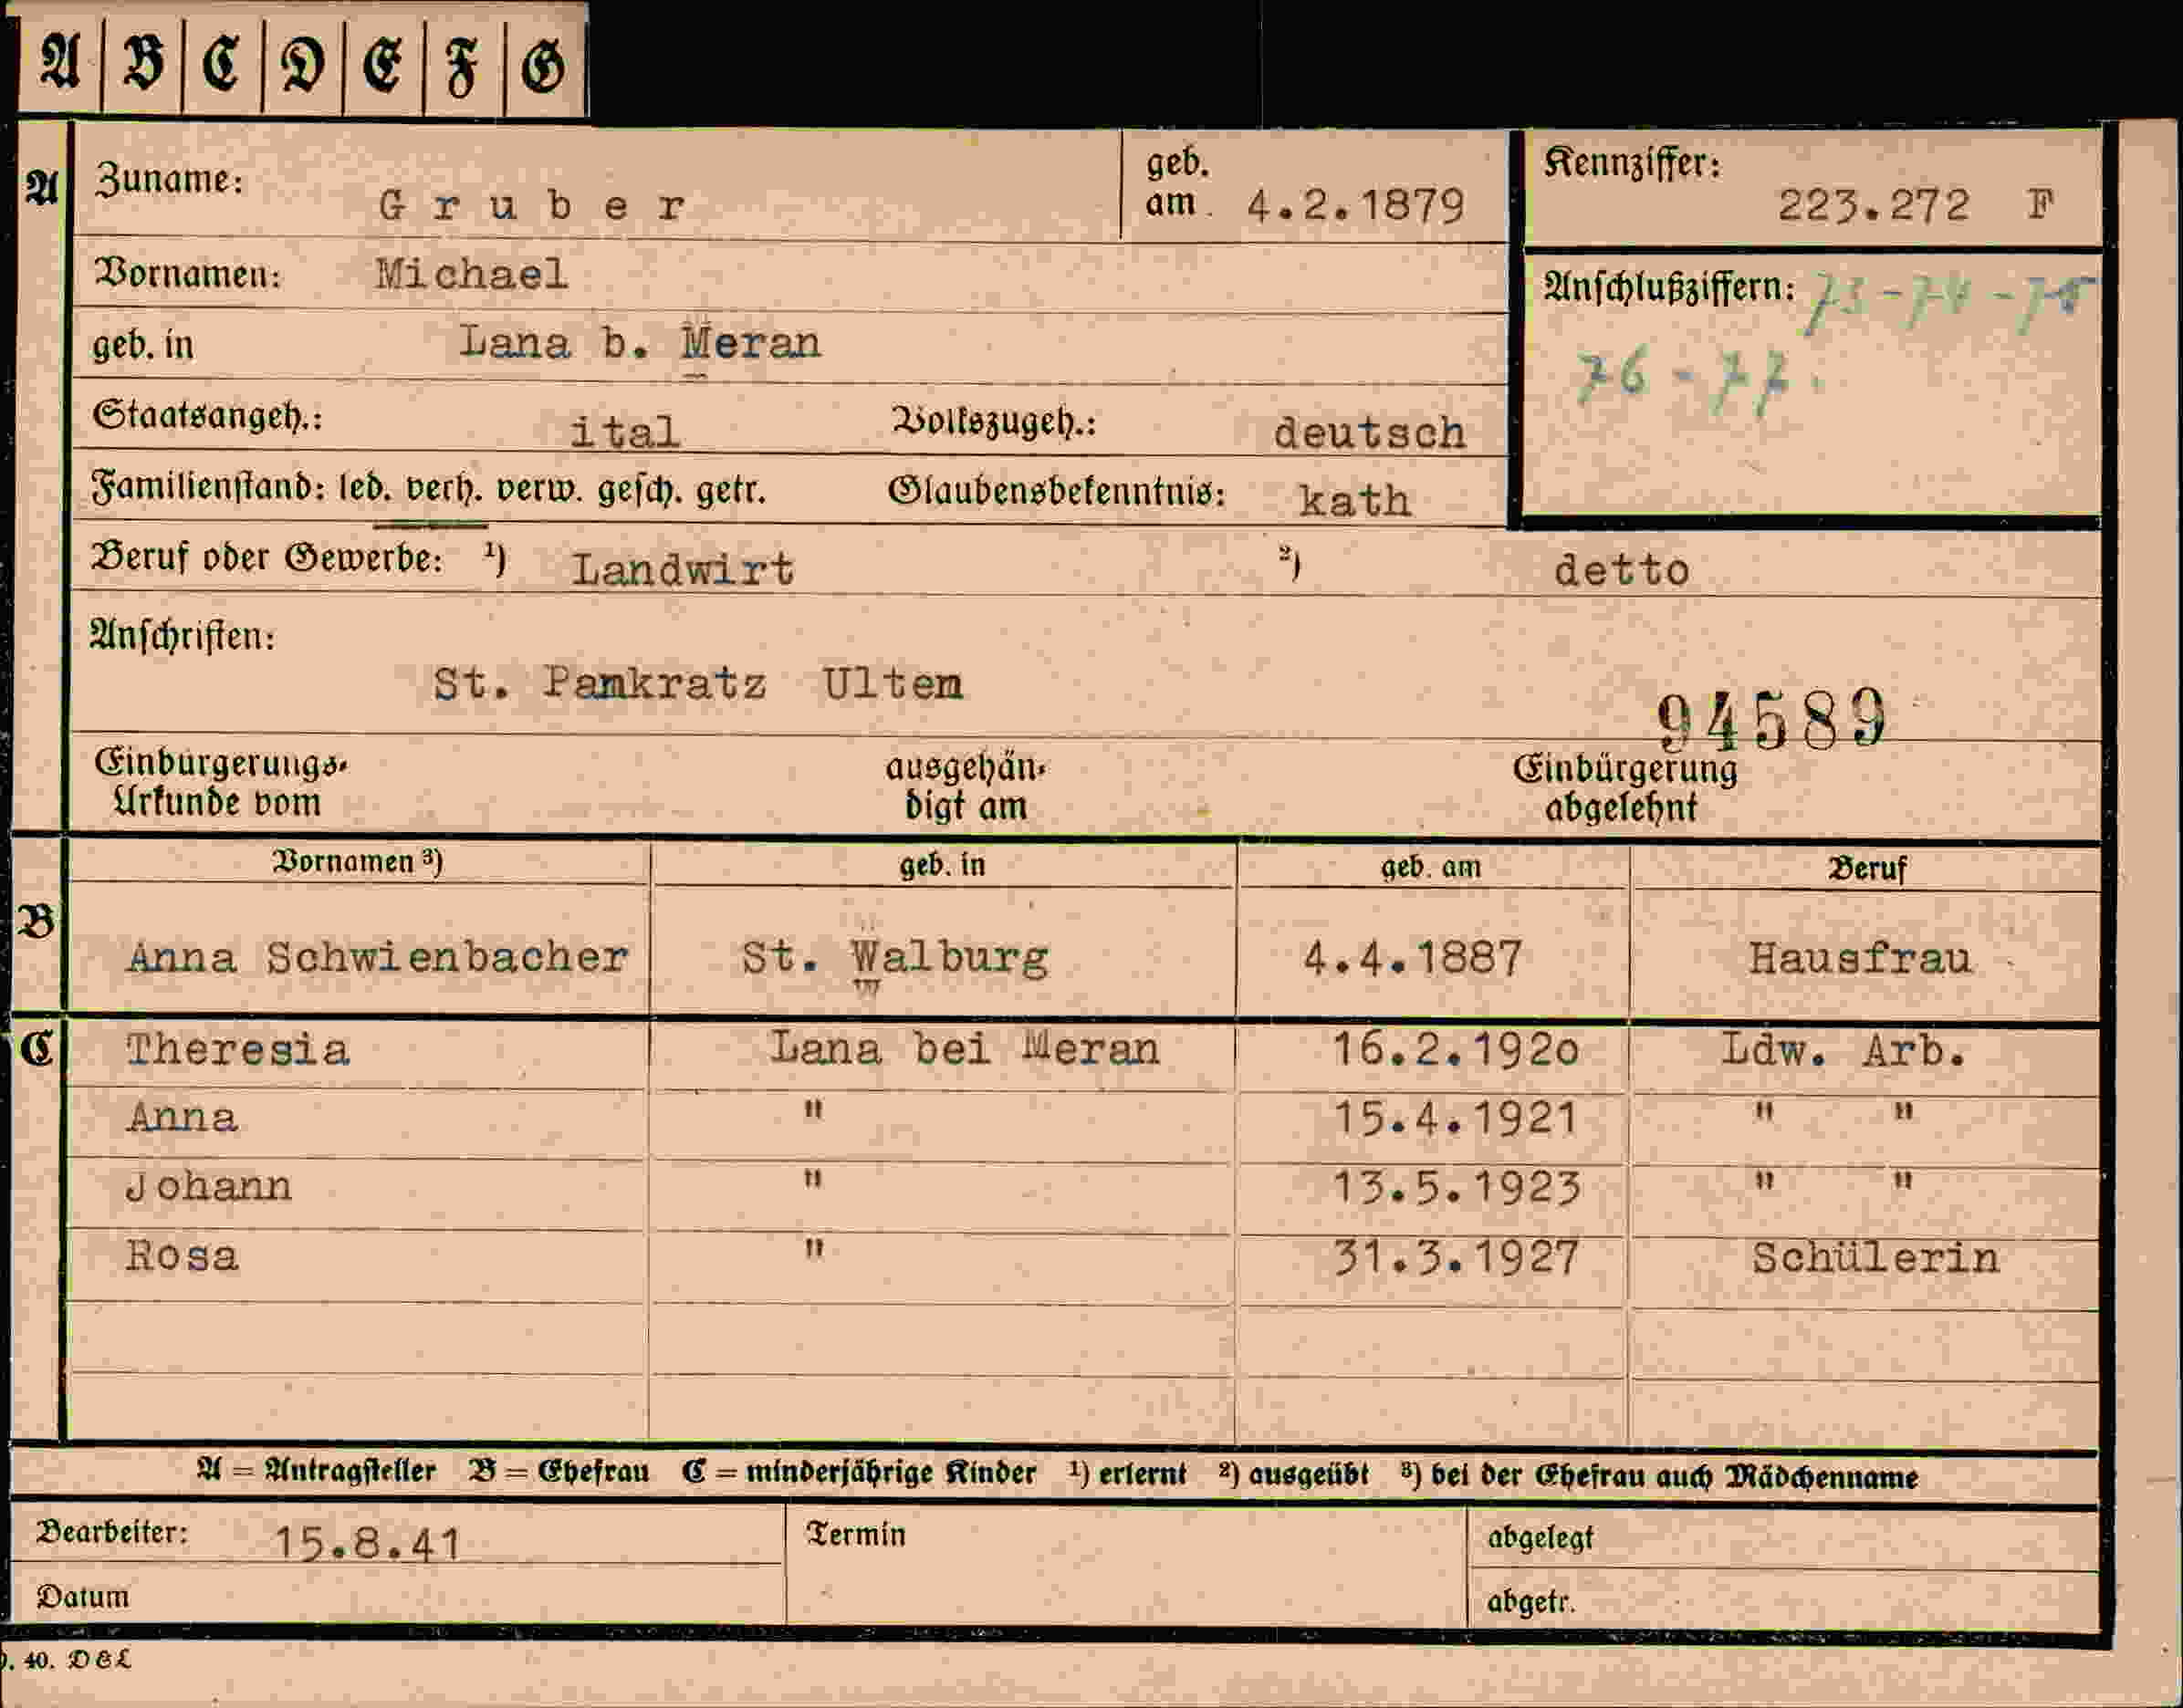 A B C D E F G
A Zuname: Gruber geb. am 4.2.1879 Kennziffer: 223.272 F
Vornamen: Michael Anschlußziffern: 73-74-75
76-77.
geb. in Lana b. Meran
Staatsangeh.: ital Volkszugeh.: deutsch
Familienstand: led. verh. verw. gesch. getr. Glaubensbekenntnis: kath
Beruf oder Gewerbe: ¹) Landwirt ²) detto
Anschriften:
St. Pankratz Ulten
94589
Einbürgerungs- ausgehän- Einbürgerung
Urkunde vom digt am abgelehnt
Vornamen ³) geb. in geb. am Beruf
B Anna Schwienbacher St. Walburg 4.4.1887 Hausfrau
C Theresia Lana bei Meran 16.2.1920 Ldw. Arb.
Anna " 15.4.1921 " "
Johann " 13.5.1923 " "
Rosa " 31.3.1927 Schülerin
A = Antragsteller B = Ehefrau C = minderjährige Kinder ¹) erlernt ²) ausgeübt ³) bei der Ehefrau auch Mädchenname
Bearbeiter: 15.8.41 Termin abgelegt
Datum abgetr.
. 40. D&L